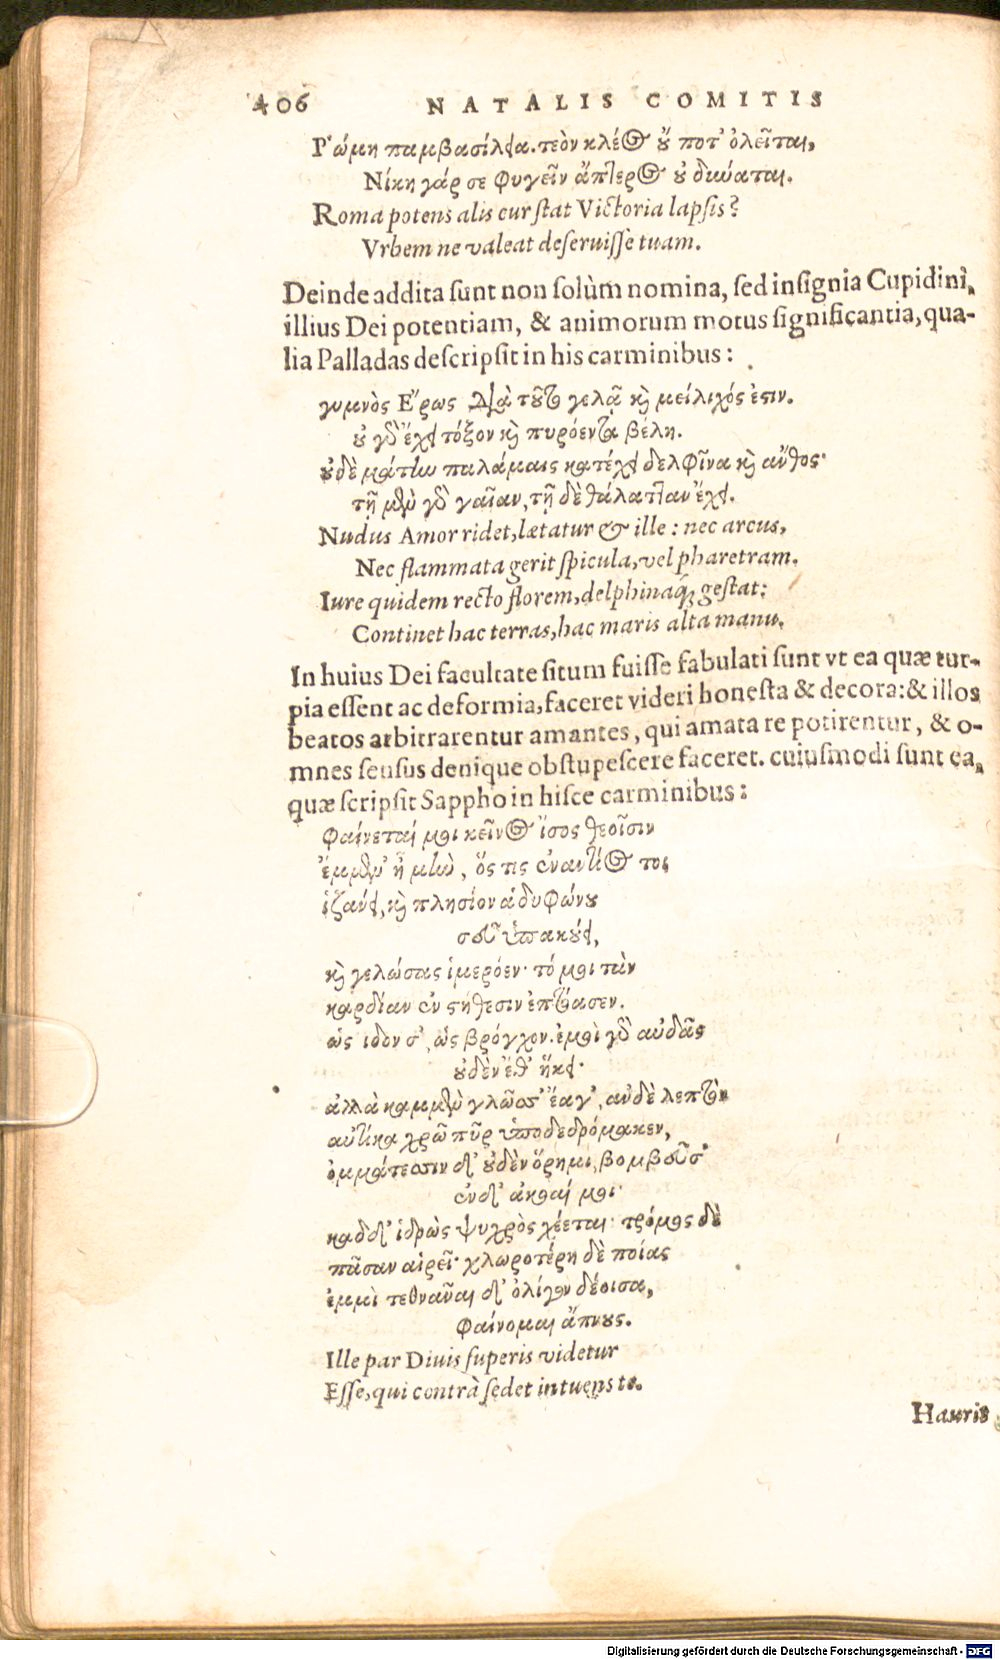 406 NATALIS COMITIS
Ῥώμη παμβασίλεια. τεὸν κλέος οὔ ποτ' ὀλεῖται,
Νίκη γάρ σε φυγεῖν ἄπτερος οὐ δύναται.
Roma potens alis cur stat Victoria lapsis?
Vrbem ne valeat deseruisse tuam.
Deinde addita sunt non solùm nomina, sed insignia Cupidini,
illius Dei potentiam, & animorum motus significantia, qua-
lia Palladas descripsit in his carminibus:
γυμνὸς Ἔρως διὰ τοῦτο γελᾷ καὶ μείλιχός ἐστιν.
οὐ γὰρ ἔχει τόξον καὶ πυρόεντα βέλη.
οὐδὲ μάτην παλάμαις κατέχει δελφῖνα καὶ ἄνθος·
τῇ μὲν γὰρ γαῖαν, τῇ δὲ θάλατταν ἔχει.
Nudus Amor ridet, lætatur & ille: nec arcus,
Nec flammata gerit spicula, vel pharetram.
Iure quidem recto florem, delphinaq́; gestat:
Continet hac terras, hac maris alta manu.
In huius Dei facultate situm fuisse fabulati sunt vt ea quæ tur-
pia essent ac deformia, faceret videri honesta & decora: & illos
beatos arbitrarentur amantes, qui amata re potirentur, & o-
mnes sensus denique obstupescere faceret. cuiusmodi sunt ea,
quæ scripsit Sappho in hisce carminibus:
Φαίνεταί μοι κεῖνος ἴσος θεοῖσιν
ἔμμεν' ἢ μὴν, ὅς τις ἐναντίος τοι
ἱζανει, καὶ πλησίον ἁδυφώνου
σοῦ ὑπακούει,
καὶ γελώσας ἱμερόεν· τό μοι τὰν
καρδίαν ἐν στήθεσιν ἐπτόασεν.
ὡς ιδον σ', ὡς βρόγχον. ἐμοὶ γὰρ αὐδᾶς
οὐδὲν ἔθ' ἥκει·
ἀλλὰ καμμὲν γλῶσσ' ἔαγ', αὐδὲ λεπτὸν
αὐτίκα χρῶ πῦρ ὑποδεδρόμακεν,
ὀμμάτεσσιν δ' οὐδὲν ὅρημι, βομβοῦσ'
ἐνδ' ἀκοαί μοι·
καδδ' ἱδρὼς ψυχρὸς χέεται· τρόμος δὲ
πᾶσαν αἱρεῖ· χλωροτέρη δὲ ποίας
ἐμμὶ τεθνᾶναι δ' ὀλίγον δέοισα,
Φαίνομαι ἄπνους.
Ille par Diuis superis videtur
Esse, qui contrà sedet intuens te.
Hauris
Digitalisierung gefördert durch die Deutsche Forschungsgemeinschaft - DFG